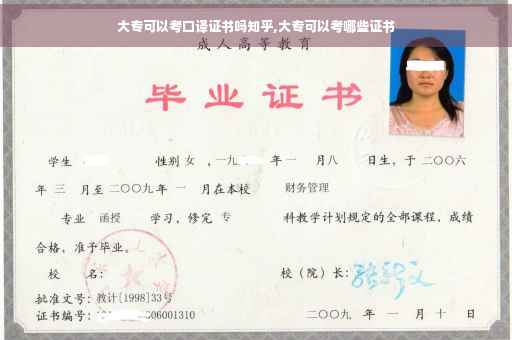 大专可以考口译证书吗知乎,大专可以考哪些证书
成人高等教育
毕业证书
学生 性别 女 ,一九 年 一 月 八 日生,于 二〇〇六
年 三 月至 二〇〇九 年 一 月在本校 财务管理
专业 函授 学习,修完 专 科教学计划规定的全部课程,成绩
合格,准予毕业。
校 名: 校(院)长:
批准文号:教计[1998]33号
证书编号: 06001310 二〇〇九 年 一 月 十 日